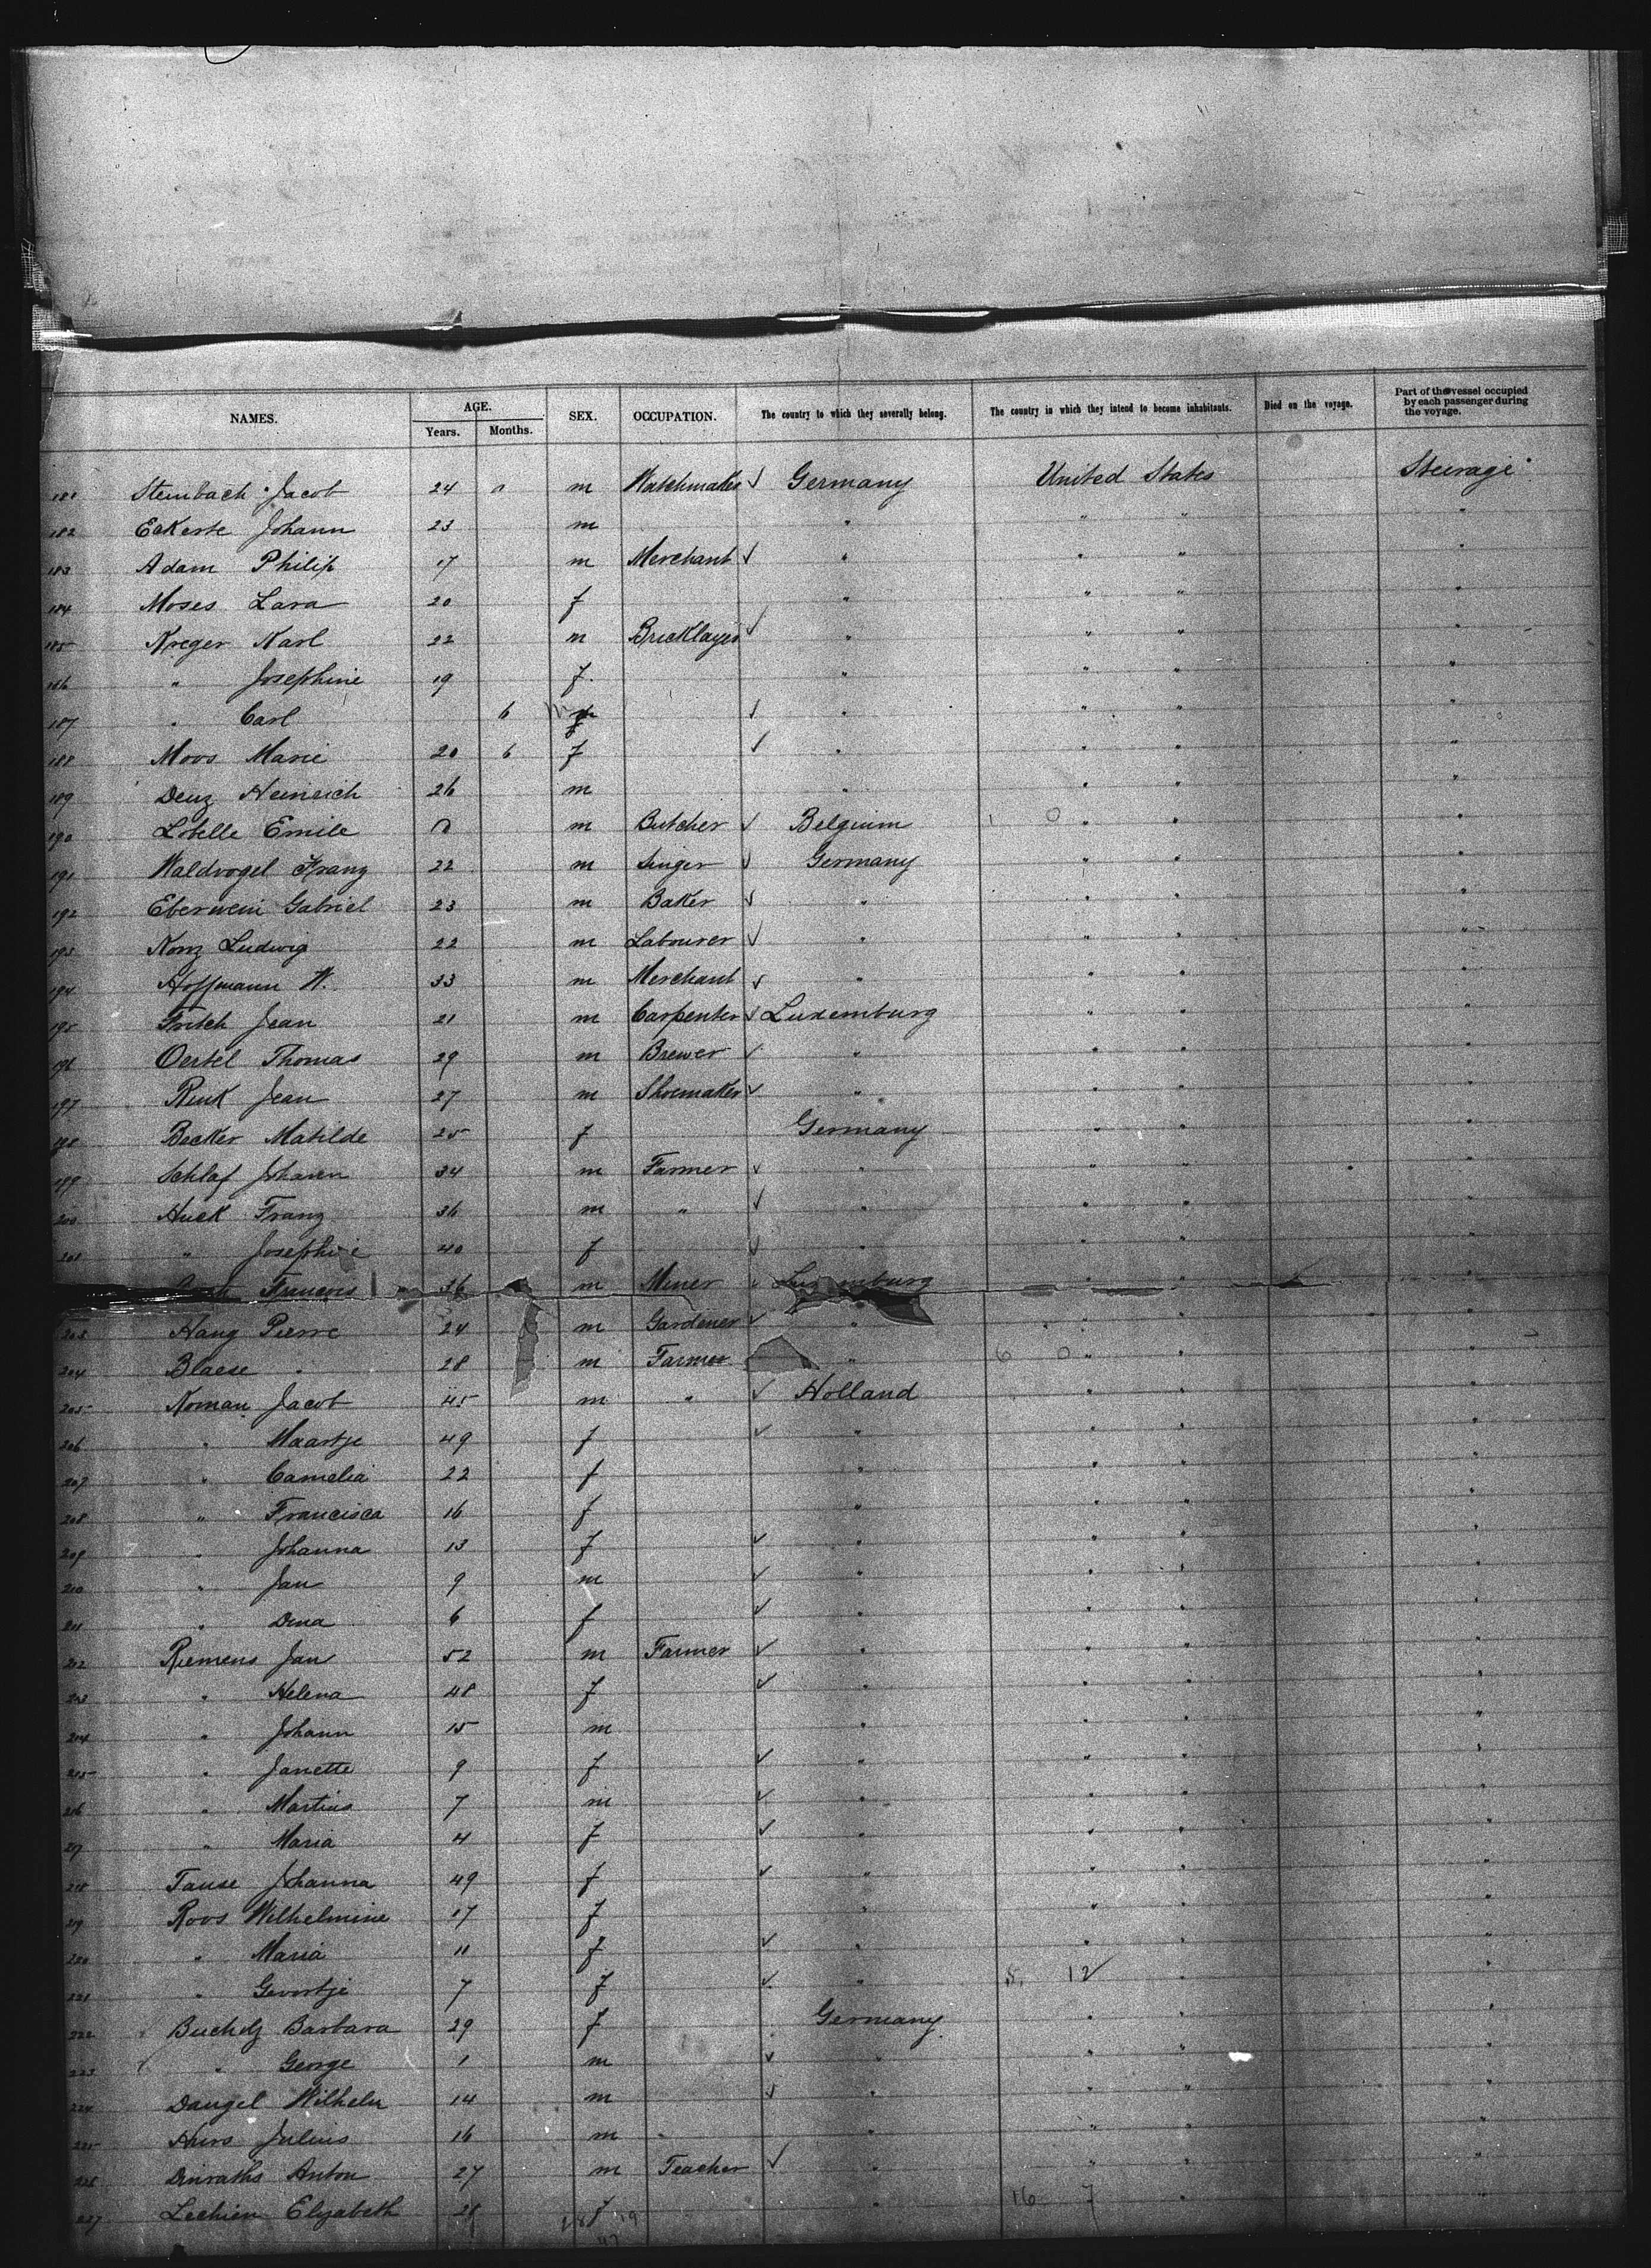 NAMES. AGE. Years. Months. SEX. OCCUPATION. The country to which they severally belong. The country in which they intend to become inhabitants. Died on the voyage. Part of the vessel occupied by each passenger during the voyage.
181 Steinbach Jacob 24 m Watchmaker ✓ Germany United States Steerage
182 Eckerte Johann 23 m " " " "
183 Adam Philip 17 m Merchant ✓ " " " "
184 Moses Lara 20 f " " " "
185 Kreger Karl 22 m Bricklayer ✓ " " " "
186 " Josephine 19 f. " " " "
187 " Carl 6 m ✓ " " " "
188 Moos Marie 20 6 f ✓ " " " "
189 Denz Heinrich 26 m " " " "
190 Lotelle Emile m Butcher ✓ Belgium 1 0 " " "
191 Waldvogel Franz 22 m Singer ✓ Germany " " "
192 Eberwein Gabriel 23 m Baker ✓ " " " "
193 Konz Ludwig 22 m Labourer ✓ " " " "
194 Hoffmann W. 33 m Merchant ✓ " " " "
195 Fritch Jean 21 m Carpenter ✓ Luxemburg " " "
196 Oertel Thomas 29 m Brewer ✓ " " " "
197 Rink Jean 27 m Shoemaker ✓ " " " "
198 Becker Matilde 25 f Germany " " "
199 Schlaf Johann 34 m Farmer ✓ " " " "
200 Huck Franz 36 m " ✓ " " " "
201 " Josephine 40 f ✓ " " " "
Francois 36 m Miner Luxemburg " " "
203 Hang Pierre 24 m Gardener ✓ " " " "
204 Blaese " 28 m Farmer " 6 0 " " "
205 Koman Jacob 45 m " ✓ Holland " " "
206 " Maartje 49 f ✓ " " " "
207 " Camelia 22 f " " " "
208 " Francisca 16 f " " " "
209 " Johanna 13 f ✓ " " " "
210 " Jan 9 m ✓ " " " "
211 " Dina 6 f ✓ " " " "
212 Riemens Jan 52 m Farmer ✓ " " " "
213 " Helena 48 f ✓ " " " "
214 " Johann 15 m " " " "
215 " Janette 9 f ✓ " " " "
216 " Martins 7 m ✓ " " " "
217 " Maria 4 f ✓ " " " "
218 Tause Johanna 49 f ✓ " " " "
219 Roos Wilhelmine 17 f " " " "
220 " Maria 11 f ✓ " " " "
221 " Geertje 7 f ✓ " 5 12 " "
222 Bucholz Barbara 29 f Germany " " "
223 " George 1 m ✓ " " " "
224 Dangel Wilhelm 14 m ✓ " " " "
225 Julius 16 m " " " "
226 Dinraths Anton 27 m Teacher ✓ " " " "
227 Lechien Elizabeth 28 f " 16 7 " "